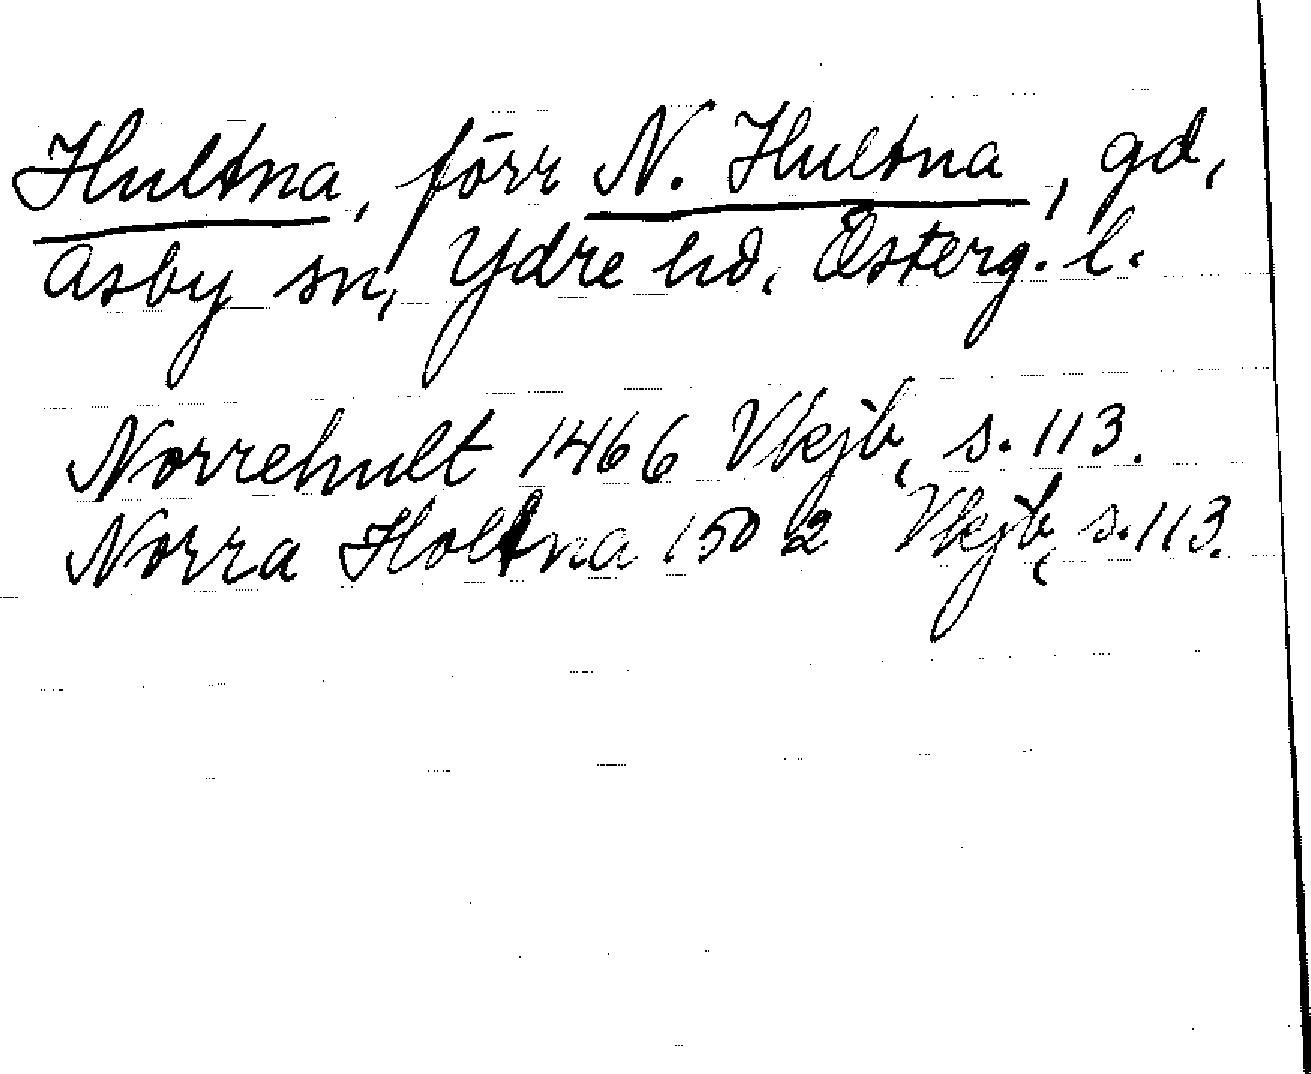 Hultna, förr N. Hultna, gd,
Asby sn, Ydre hd, Österg. l.
Norrehult 1466 Vkjb, s. 113.
Norra Holtna 1502 Vkjb, s. 113.